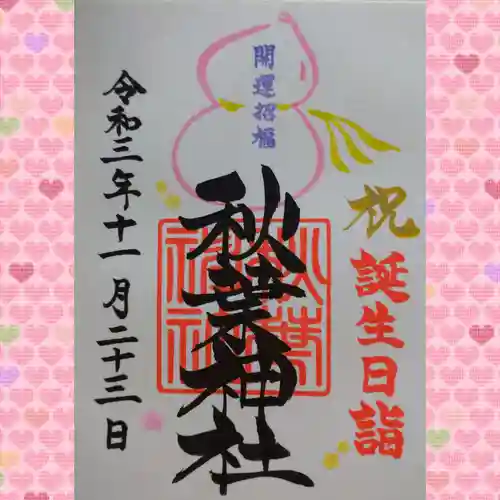 開運招福
祝
誕生日詣
秋葉神社
秋葉神社
令和三年十一月二十三日